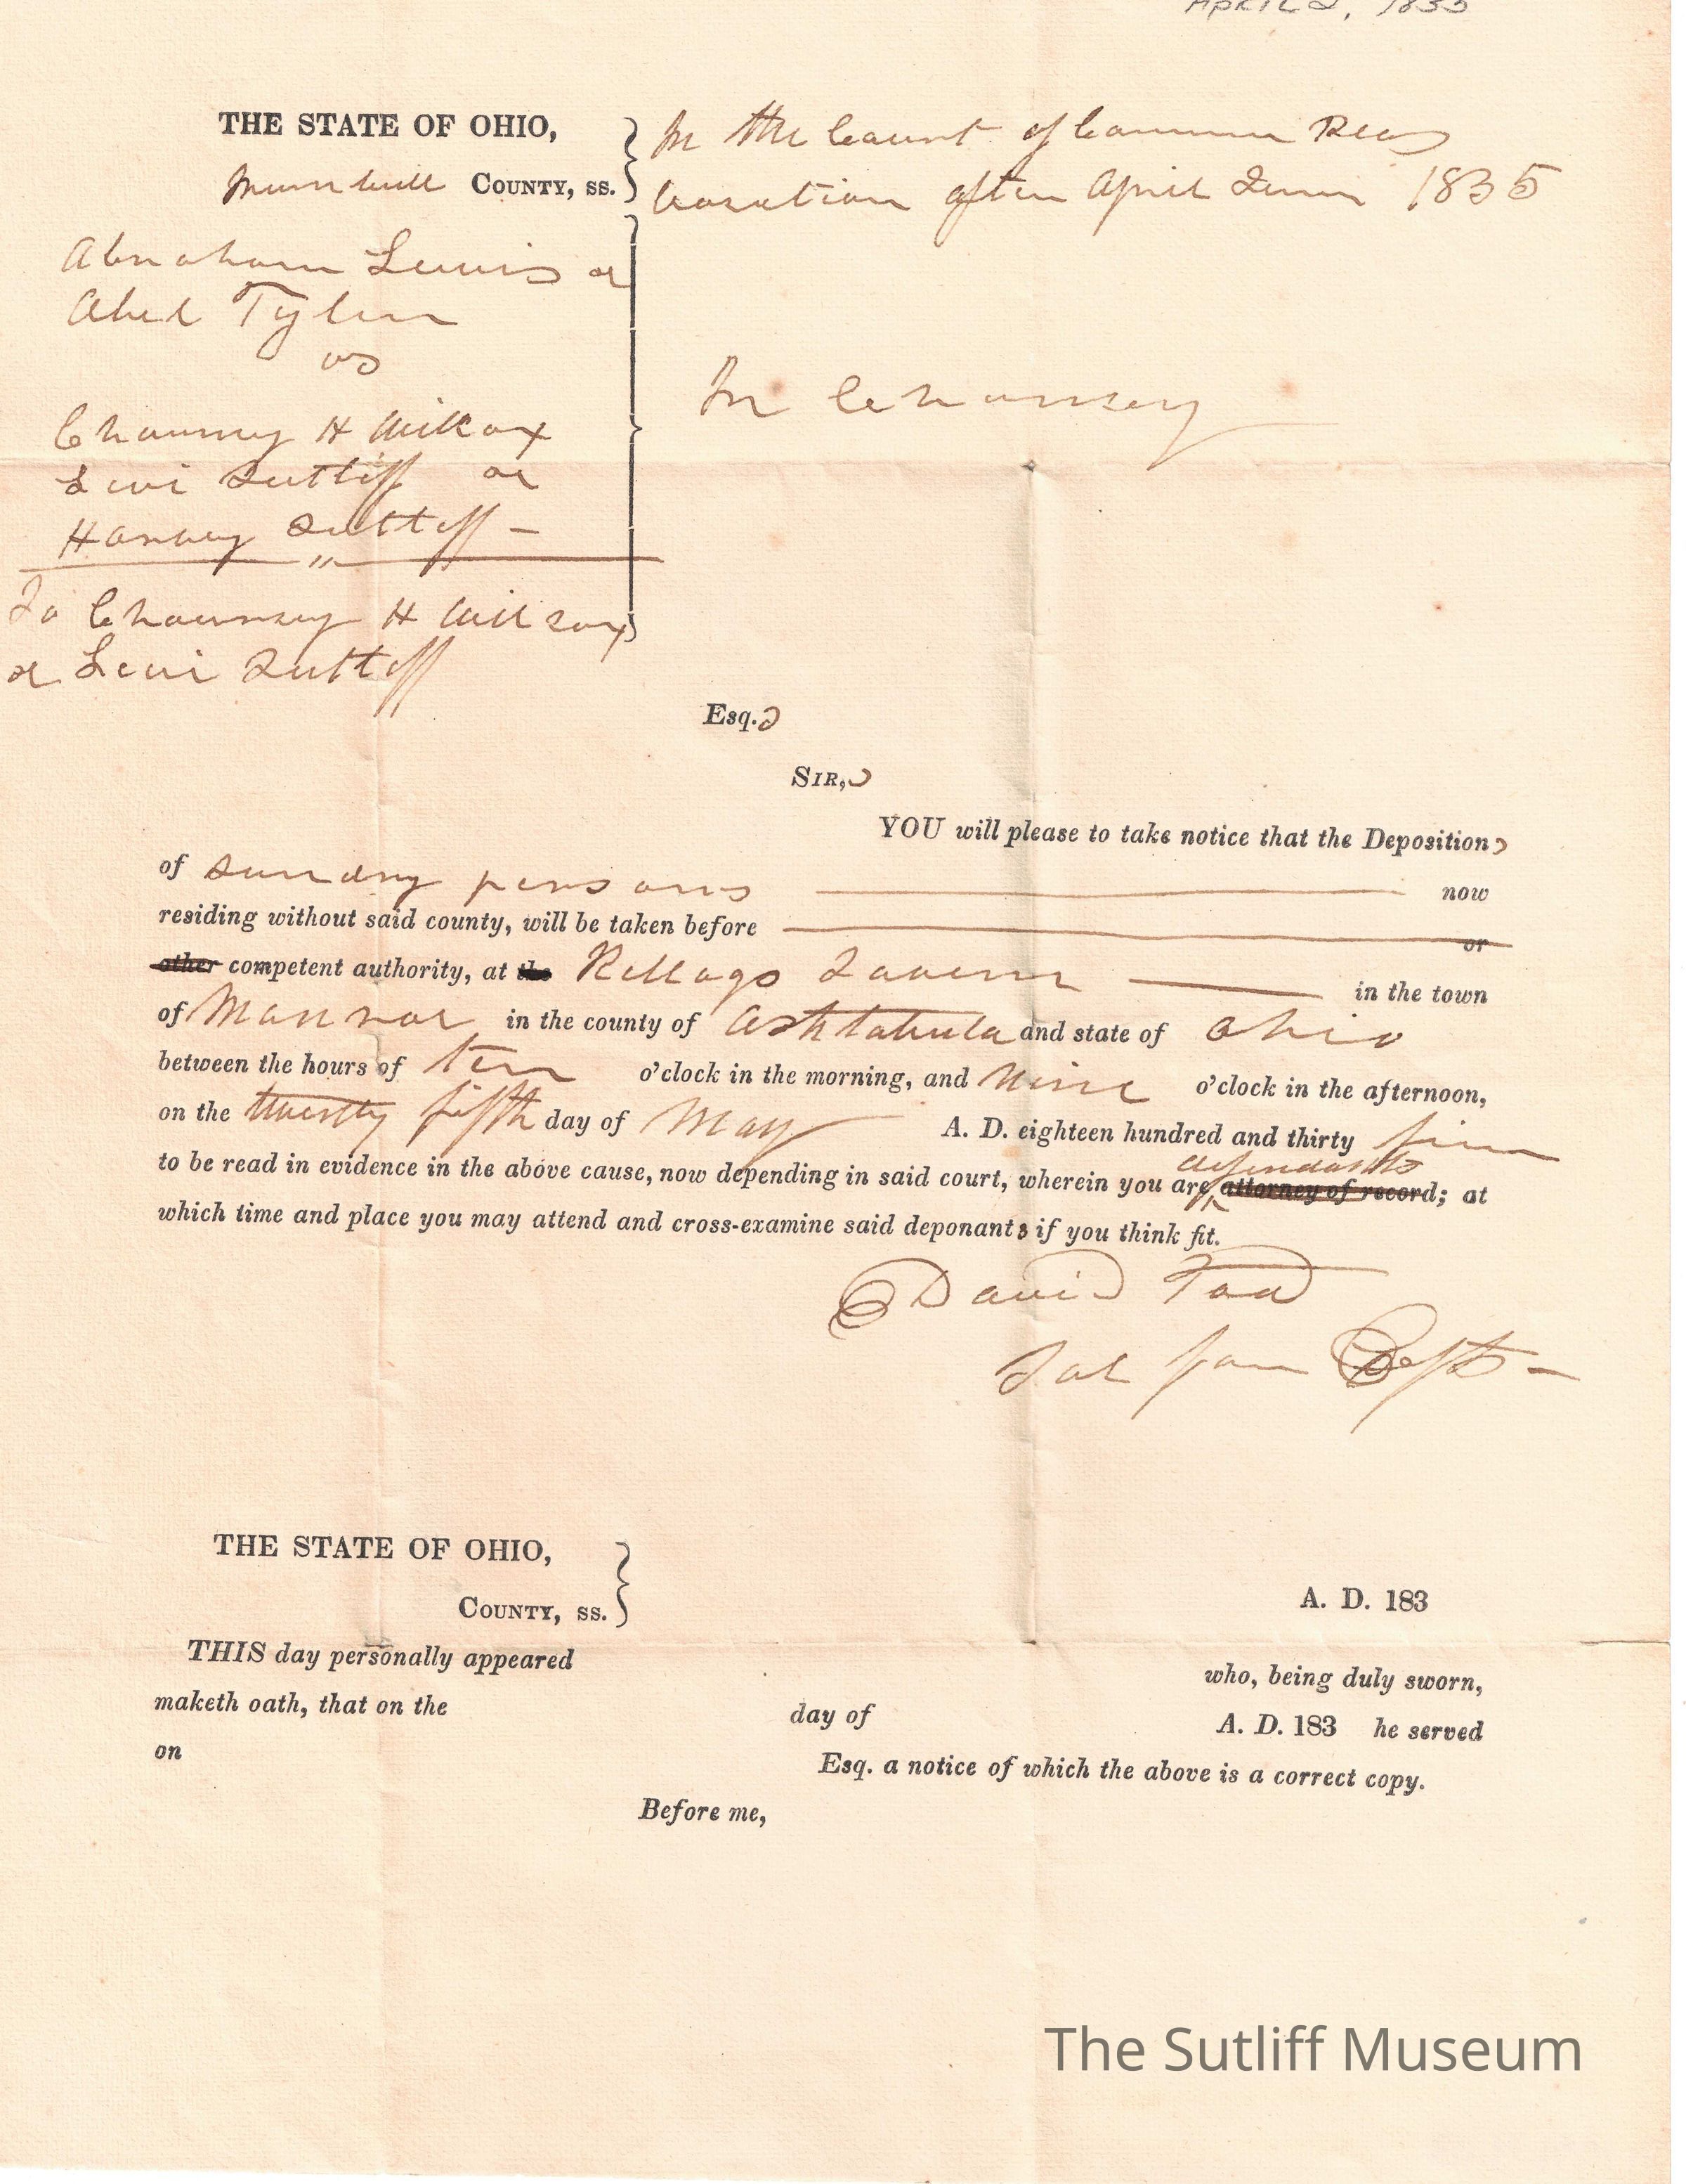 APRIL 2, 1835
THE STATE OF OHIO,
Trumbull COUNTY, SS.
In the Court of Common Pleas
Vacation after April Term 1835
Abraham Lewis &
Abel Tyler
vs
Chauncey H Wilcox
Levi Sutliff &
Harvey Sutliff -
In Chancery
To Chauncey H Wilcox
& Levi Sutliff
Esqs
SIRs
YOU will please to take notice that the Depositions
of Sundry persons now
residing without said county, will be taken before
or
other competent authority, at the Kelloggs Tavern in the town
of in the county of Ashtabula and state of Ohio
between the hours of ten o'clock in the morning, and nine o'clock in the afternoon,
on the twenty fifth day of May A. D. eighteen hundred and thirty five
to be read in evidence in the above cause, now depending in said court, wherein you are defendants attorney of record; at
which time and place you may attend and cross-examine said deponants if you think fit.
David Tod
Sol for Defts -
THE STATE OF OHIO,
COUNTY, SS.
A. D. 183
THIS day personally appeared who, being duly sworn,
maketh oath, that on the day of A. D. 183 he served
on Esq. a notice of which the above is a correct copy.
Before me,
The Sutliff Museum